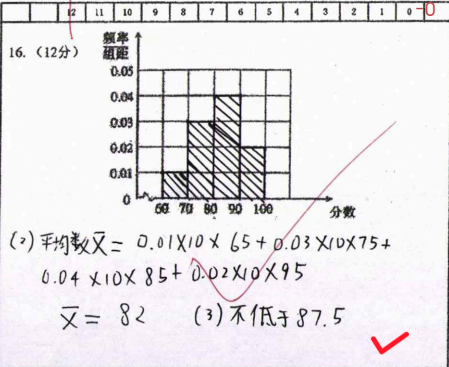 12 11 10 9 8 7 6 5 4 3 2 1 0 -0
16. (12分)
频率
组距
0.05
0.04
0.03
0.02
0.01
0
50 70 80 90 100 分数
(2) 平均数x̄ = 0.01×10×65+0.03×10×75+
0.04×10×85+0.02×10×95
x̄ = 82 (3) 不低于87.5